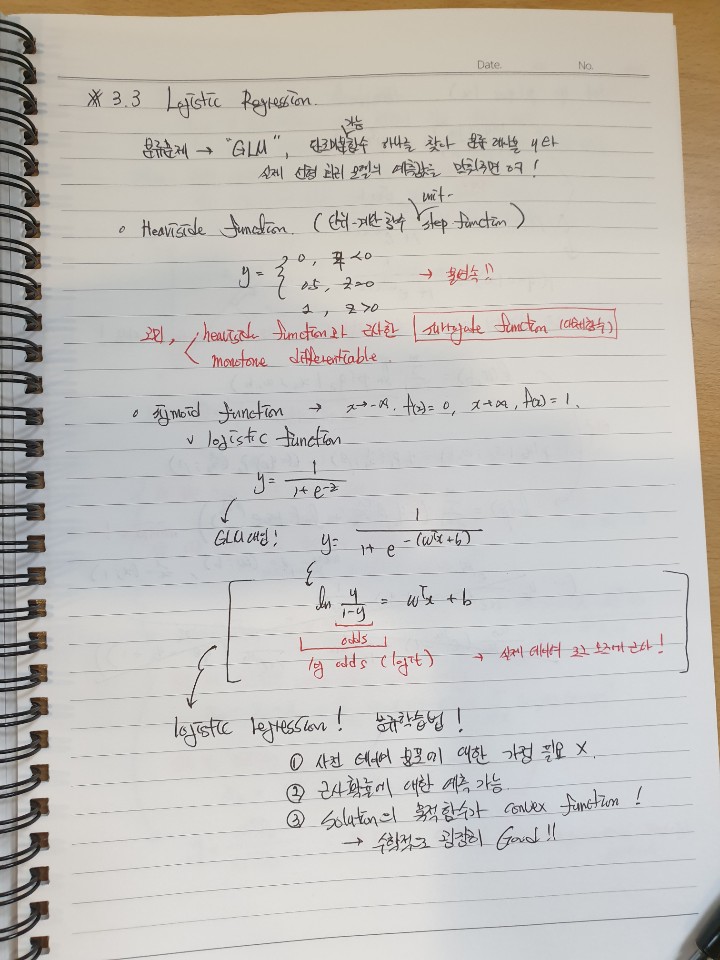 Date.
No.
※ 3.3 Logistic Regression.
가능
분류문제 → "GLM", 단조미분함수 하나를 찾아 분류 레이블 y와
실제 선형 회귀 모델의 예측값을 맞춰주면 OK!
unit-
◦ Heaviside function. (단위-계단 함수 step function)
y = { 0, z < 0
0.5, z = 0 → 불연속!!
1, z > 0
고로, heaviside function과 근사한 surrogate function (대체함수)
monotone differentiable
◦ sigmoid function → x→-∞, f(x)=0, x→∞, f(x)=1.
∨ logistic function
y = 1 / 1+e^-z
GLM 대입! y = 1 / 1+e^-(wᵀx+b)
ln y / 1-y = wᵀx + b
odds
log odds (logit) → 실제 데이터 로그 오즈에 근사!
logistic regression! 분류학습법!
① 사전 데이터 분포에 대한 가정 필요 X.
② 근사확률에 대한 예측 가능.
③ Solution의 목적함수가 convex function!
→ 수학적으로 굉장히 Good!!